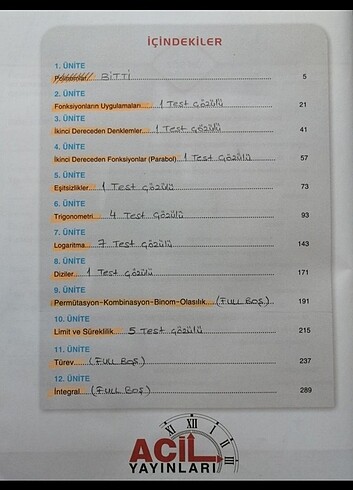 İÇİNDEKİLER
1. ÜNİTE
Polinomlar BİTTİ 5
2. ÜNİTE
Fonksiyonların Uygulamaları 1 Test Çözülü 21
3. ÜNİTE
İkinci Dereceden Denklemler 1 Test Çözülü 41
4. ÜNİTE
İkinci Dereceden Fonksiyonlar (Parabol) 1 Test Çözülü 57
5. ÜNİTE
Eşitsizlikler 1 Test Çözülü 73
6. ÜNİTE
Trigonometri 4 Test Çözülü 93
7. ÜNİTE
Logaritma 7 Test Çözülü 143
8. ÜNİTE
Diziler 1 Test Çözülü 171
9. ÜNİTE
Permütasyon-Kombinasyon-Binom-Olasılık (FULL BOŞ) 191
10. ÜNİTE
Limit ve Süreklilik 5 Test Çözülü 215
11. ÜNİTE
Türev (FULL BOŞ) 237
12. ÜNİTE
İntegral (FULL BOŞ) 289
XI XII I II III
ACİL
YAYINLARI